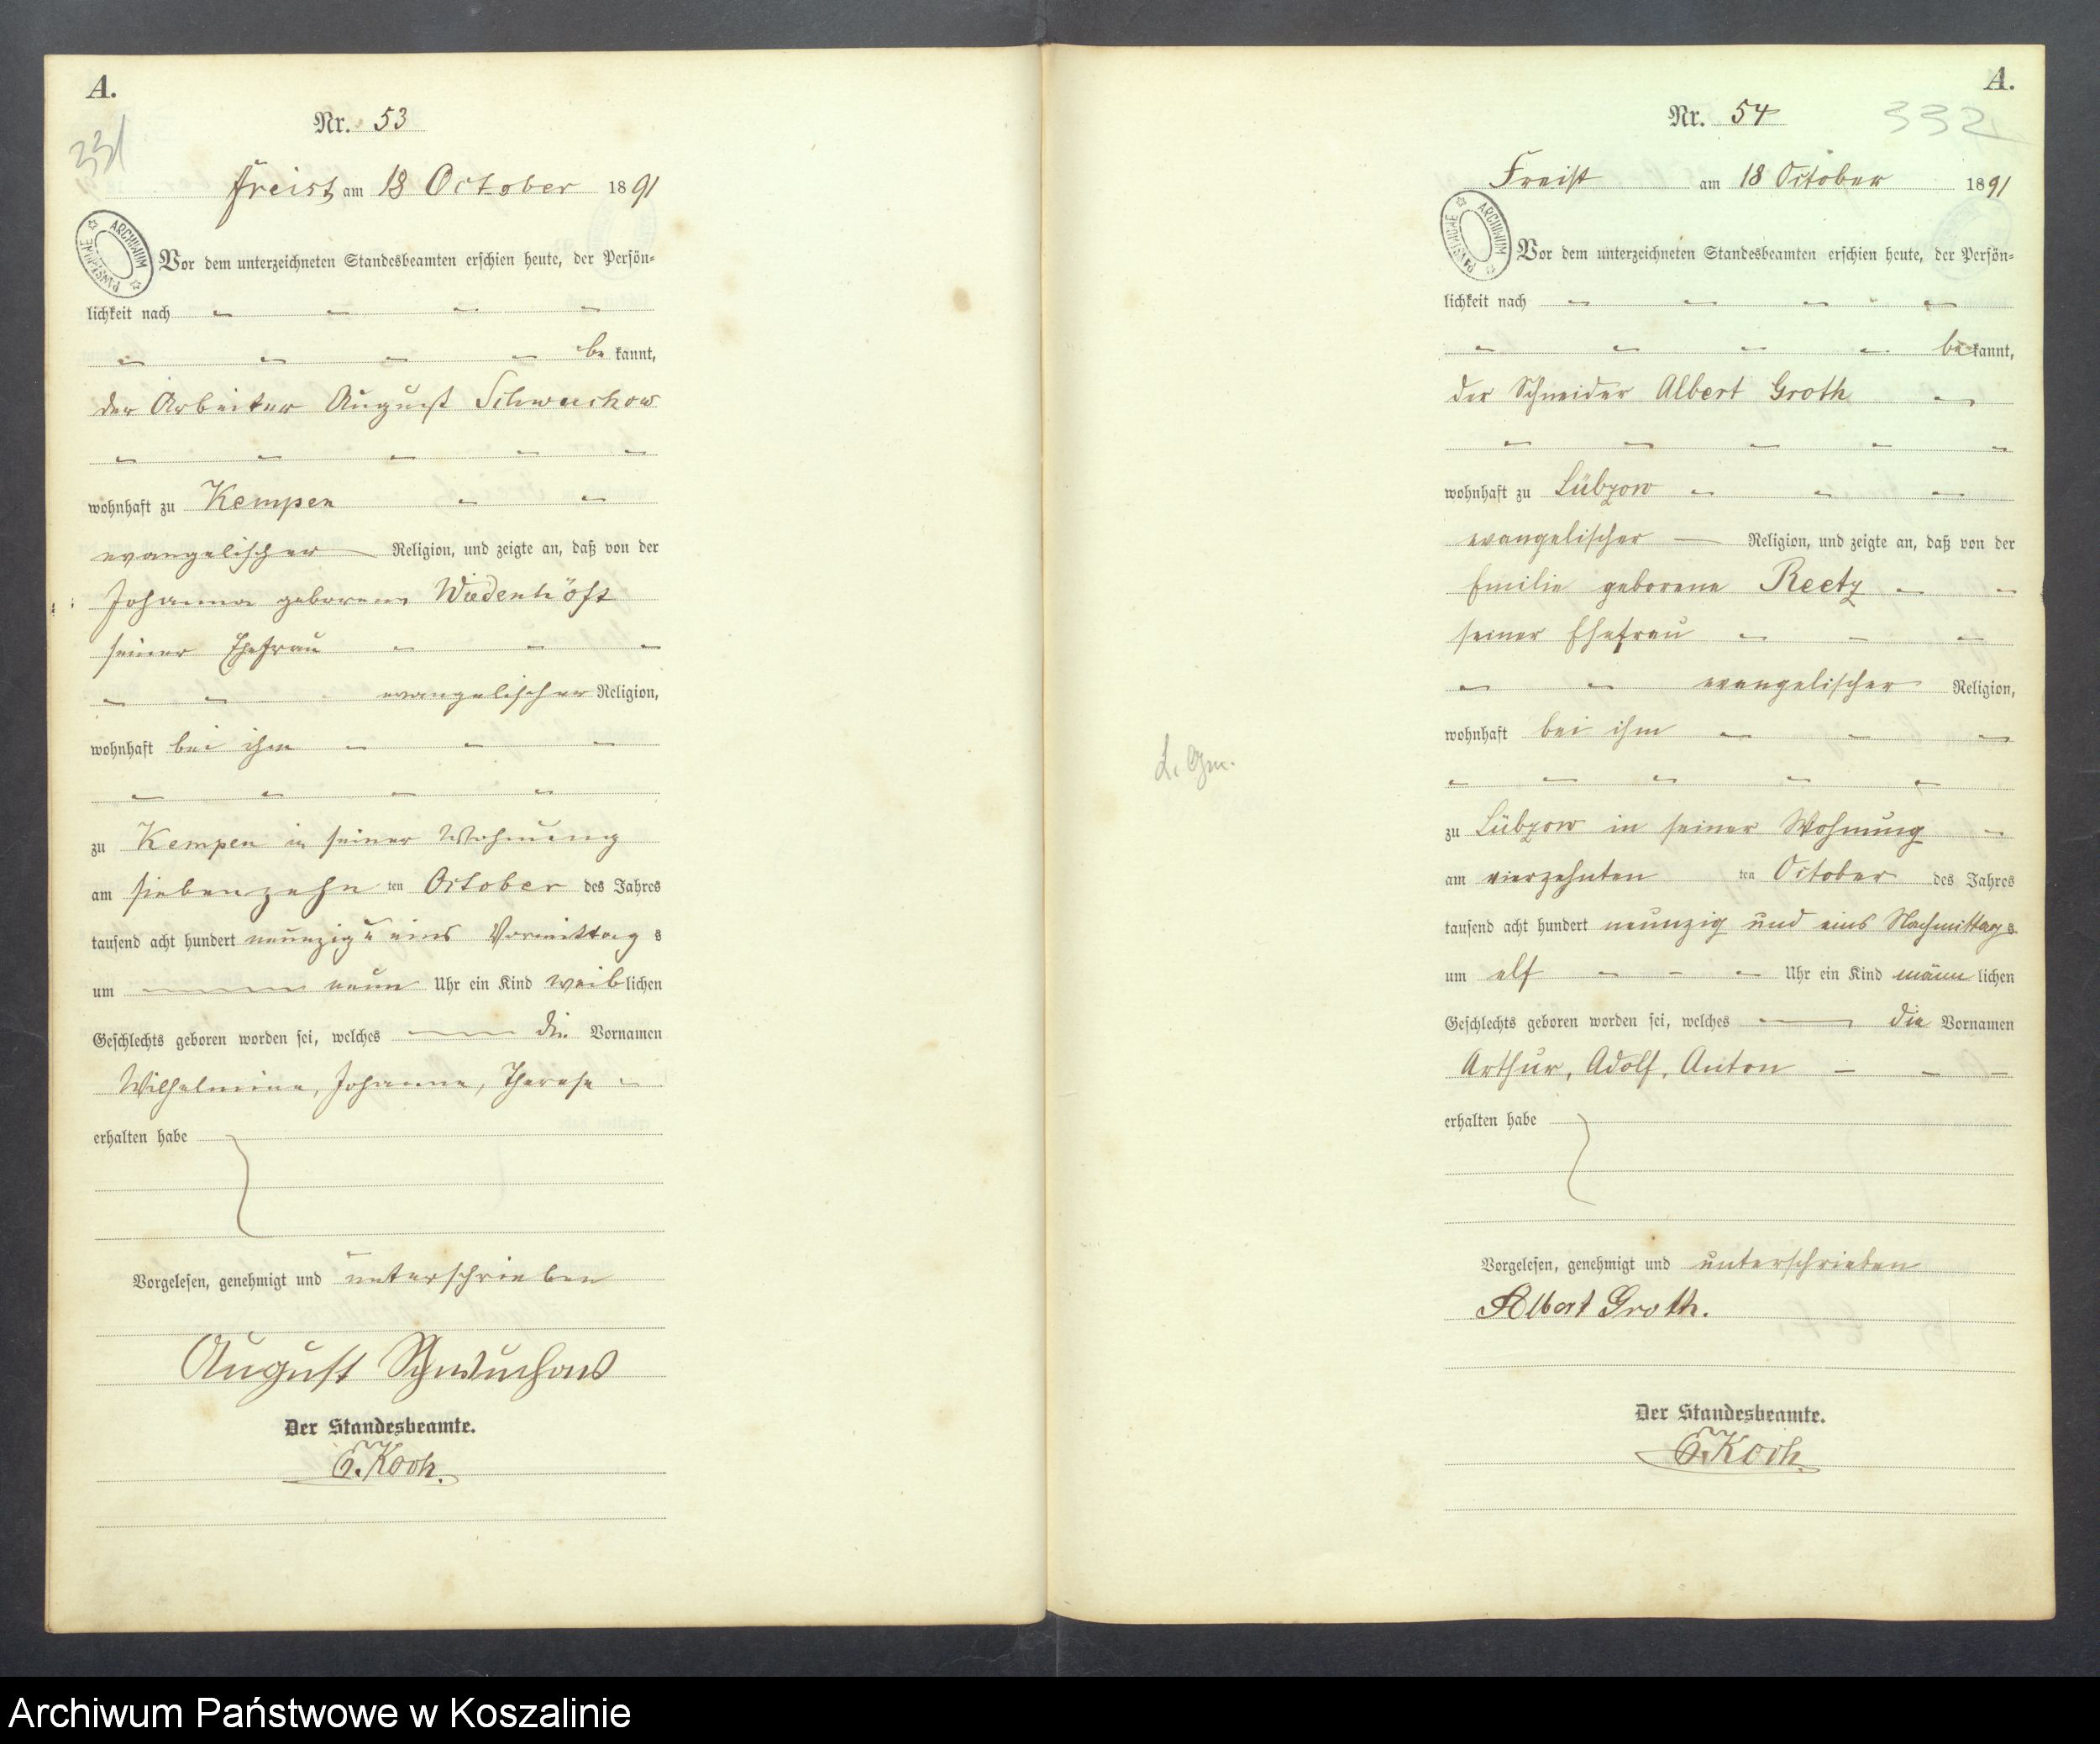 A.
331
Nr. 53
Freist am 18 October 1891
ARCHIWUM PAŃSTWOWE
Vor dem unterzeichneten Standesbeamten erschien heute, der Persön-
lichkeit nach
be kannt,
der Arbeiter August Schwuchow
wohnhaft zu Kempen
evangelischer Religion, und zeigte an, daß von der
Johanna geborenen Wiedenhöft
seiner Ehefrau
evangelischer Religion,
wohnhaft bei ihm
zu Kempen in seiner Wohnung
am siebenzehn ten October des Jahres
tausend acht hundert neunzig u eins Vormittag s
um neun Uhr ein Kind weiblichen
Geschlechts geboren worden sei, welches die Vornamen
Wilhelmine, Johanne, Therese
erhalten habe
Vorgelesen, genehmigt und unterschrieben
August Schwuchow
Der Standesbeamte.
E. Koch.
A.
332
Nr. 54
Freist am 18 October 1891
ARCHIWUM PAŃSTWOWE
Vor dem unterzeichneten Standesbeamten erschien heute, der Persön-
lichkeit nach
bekannt,
der Schneider Albert Groth
wohnhaft zu Lübzow
evangelischer Religion, und zeigte an, daß von der
Emilie geborene Reetz
seiner Ehefrau
evangelischer Religion,
wohnhaft bei ihm
zu Lübzow in seiner Wohnung
am vierzehnten ten October des Jahres
tausend acht hundert neunzig und eins Nachmittag s
um elf Uhr ein Kind männ lichen
Geschlechts geboren worden sei, welches die Vornamen
Arthur, Adolf, Anton
erhalten habe
Vorgelesen, genehmigt und unterschrieben
Albert Groth.
Der Standesbeamte.
E. Koch.
Archiwum Państwowe w Koszalinie